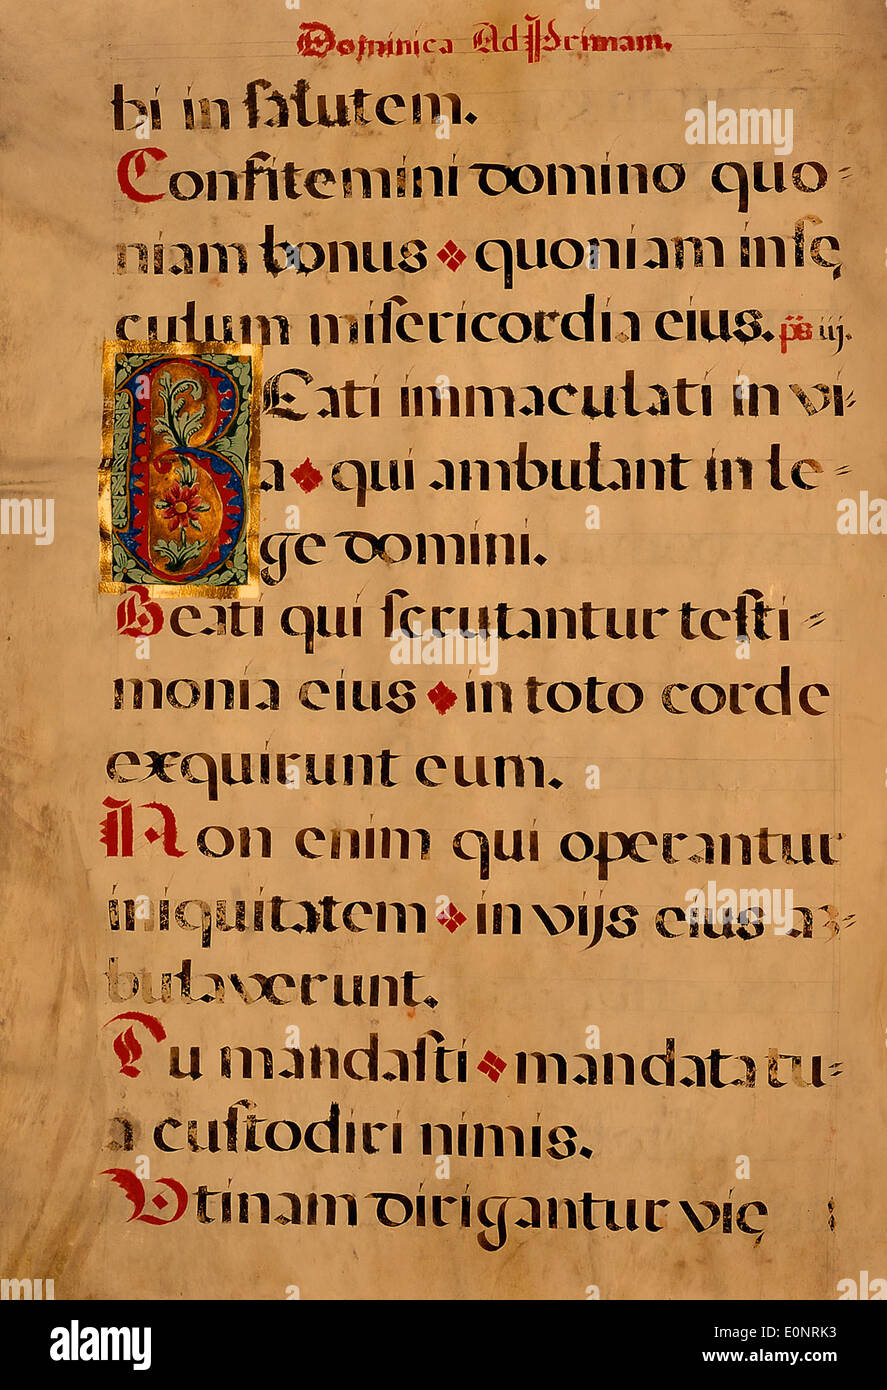 Dominica Ad Primam.
bi in salutem.
Confitemini domino quo-
niam bonus quoniam in sę
culum misericordia eius. ps iij.
BEati immaculati in vi-
a qui ambulant in le-
ge domini.
Beati qui scrutantur testi-
monia eius in toto corde
exquirunt eum.
Non enim qui operantur
iniquitatem in vijs eius a
bulaverunt.
Tu mandasti mandata tu-
a custodiri nimis.
Utinam dirigantur vię
alamy
Image ID: E0NRK3
www.alamy.com